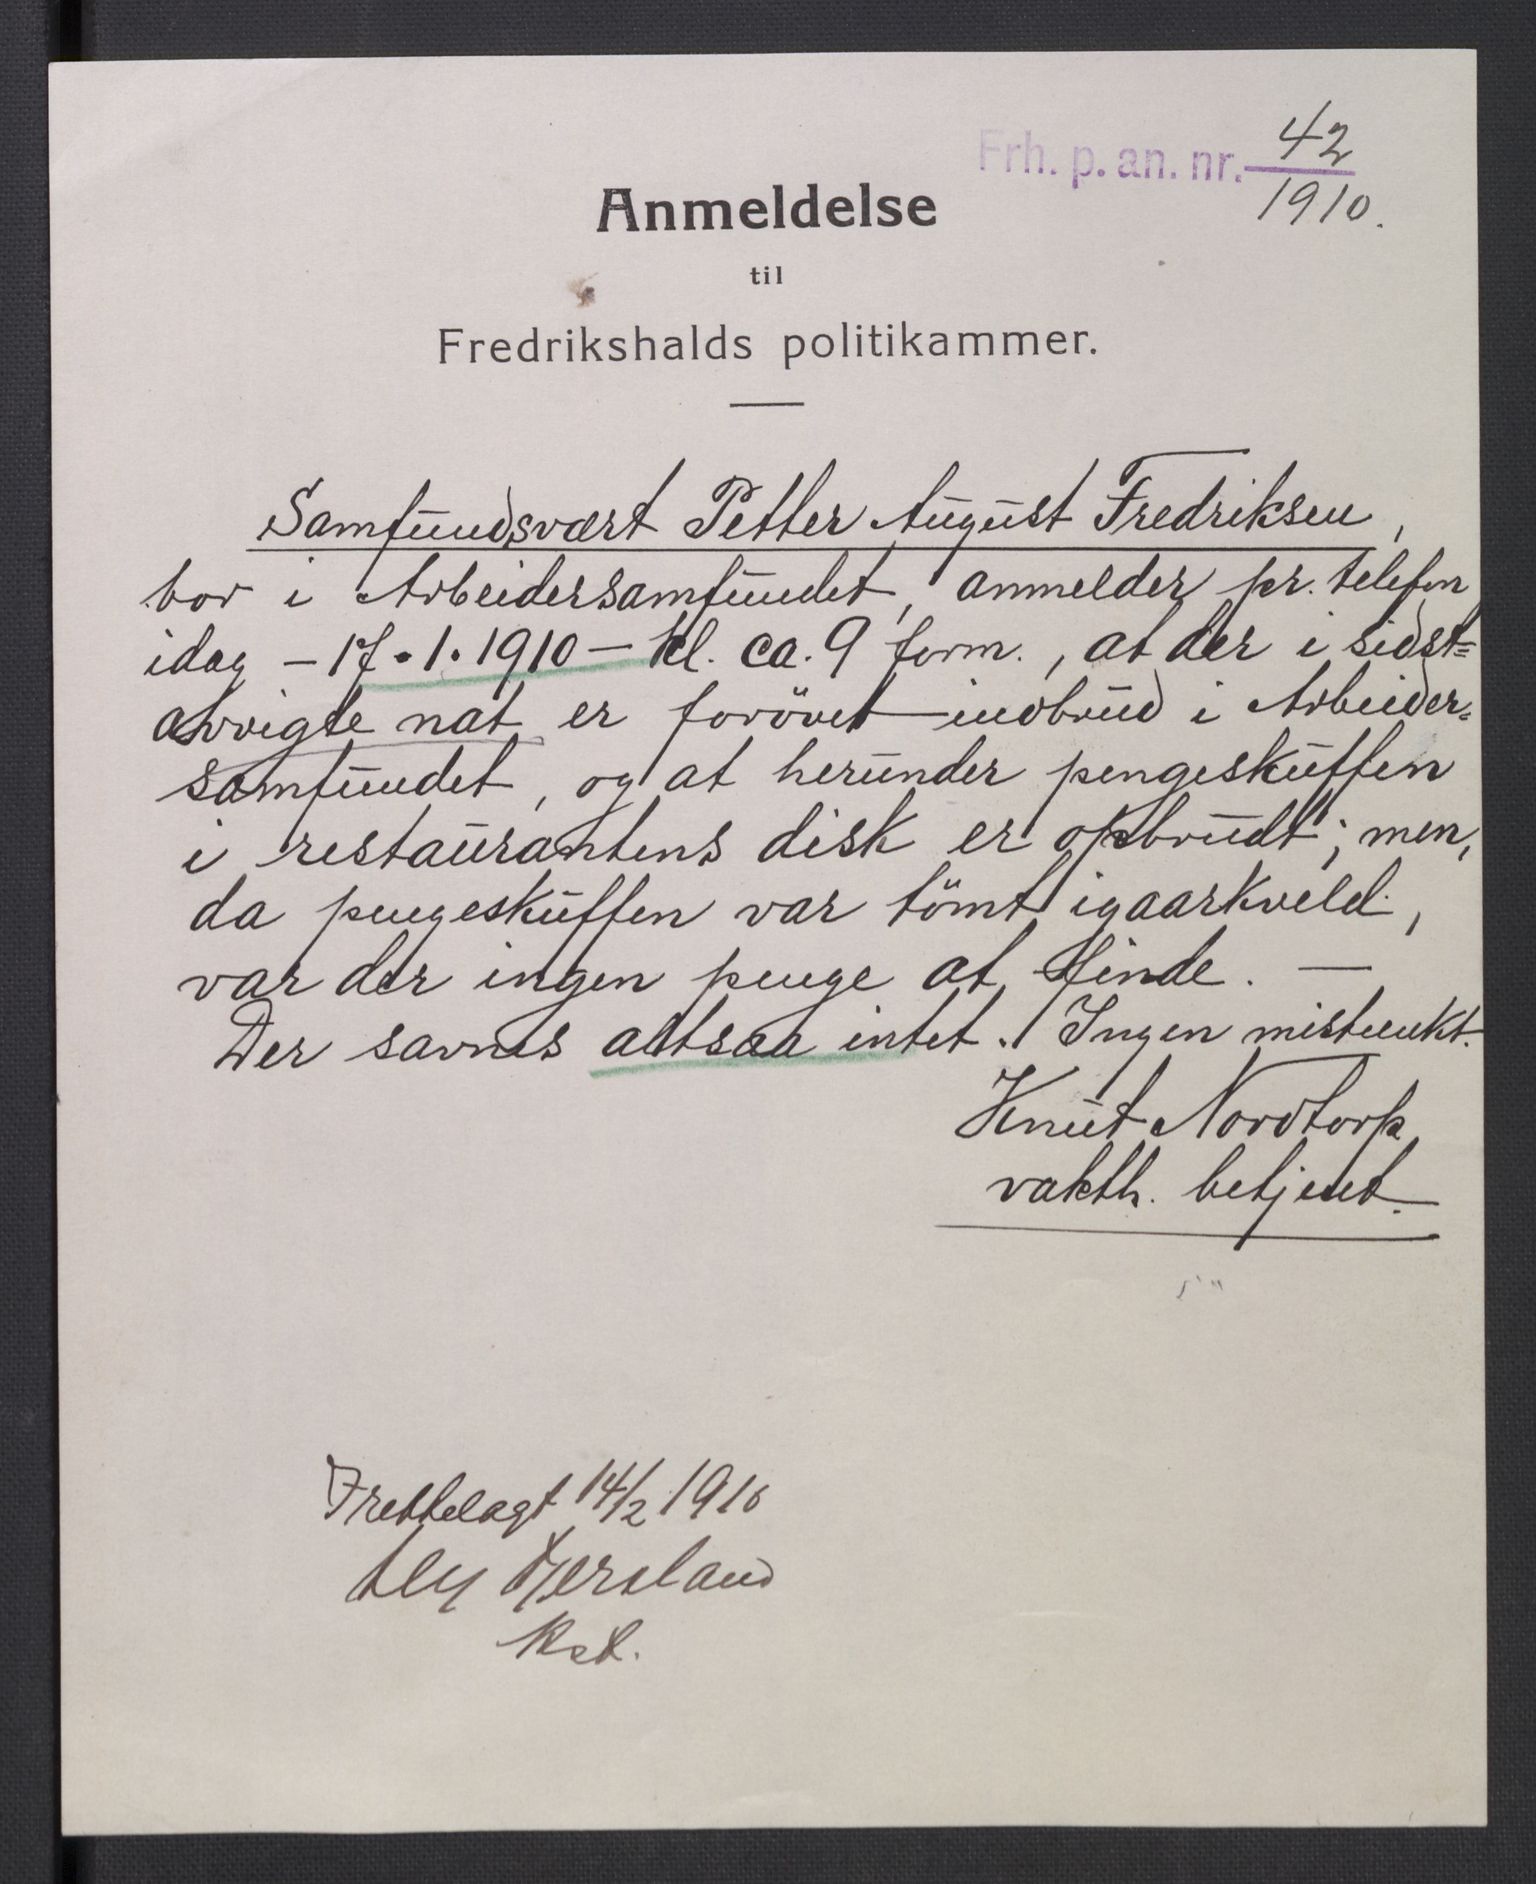 Frh. p. an. nr. 42
1910.
Anmeldelse
til
Fredrikshalds politikammer.
Samfundsvært Petter August Fredriksen,
bor i Arbeidersamfundet, anmelder pr. telefon
idag – 17.1.1910 – kl. ca. 9 form., at der i sidst=
avvigte nat er forövet indbrud i Arbeider=
samfundet, og at herunder pengeskuffen
i restaurantens disk er opbrudt; men,
da pengeskuffen var tömt igaarkveld,
var der ingen penge at finde. —
Der savnes altsaa intet. Ingen mistænkt.
Knut Nordtorp
vakth. betjent.
Frettelagt 14/2 1910
Kst.